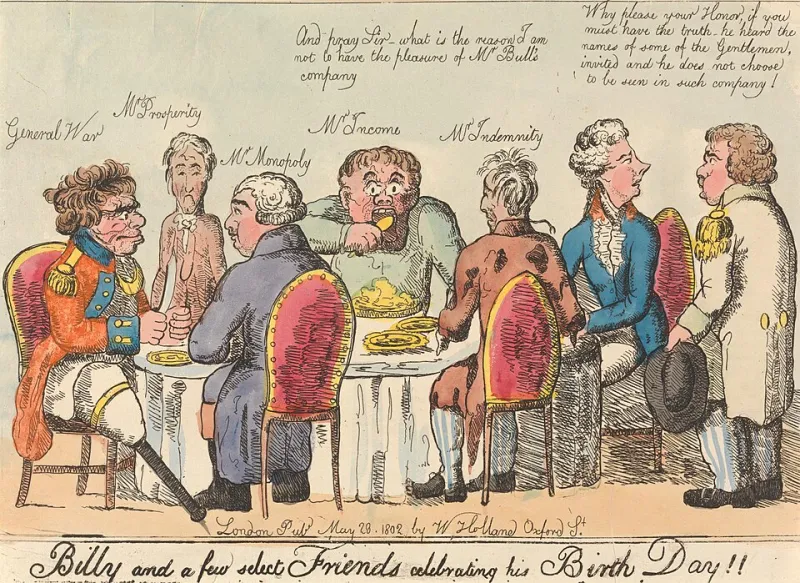 And pray Sir - what is the reason I am
not to have the pleasure of Mr Bull's
company
Why please your Honor, if you
must have the truth - he heard the
names of some of the Gentlemen,
invited and he does not choose
to be seen in such company!
General War
Mr Prosperity
Mr Monopoly
Mr Income
Mr Indemnity
London Pubd May 28. 1802 by W Holland Oxford St
Billy and a few select Friends celebrating his Birth Day!!